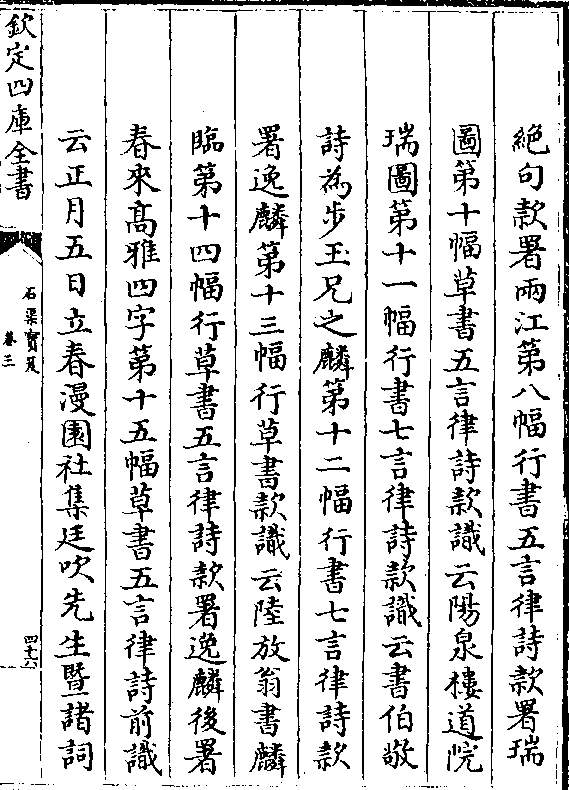 絶句款署兩江第八幅行書五言律詩款署瑞
圖第十幅草書五言律詩款識云陽泉樓道院
瑞圖第十一幅行書七言律詩款識云書伯敬
詩為步玉兄之麟第十二幅行書七言律詩款
署逸麟第十三幅行草書款識云陸放翁書麟
臨第十四幅行草書五言律詩款署逸麟後署
春來髙雅四字第十五幅草書五言律詩前識
云正月五日立春漫園社集廷吹先生暨諸詞
欽定四庫全書
石渠寳笈
卷三
四十六